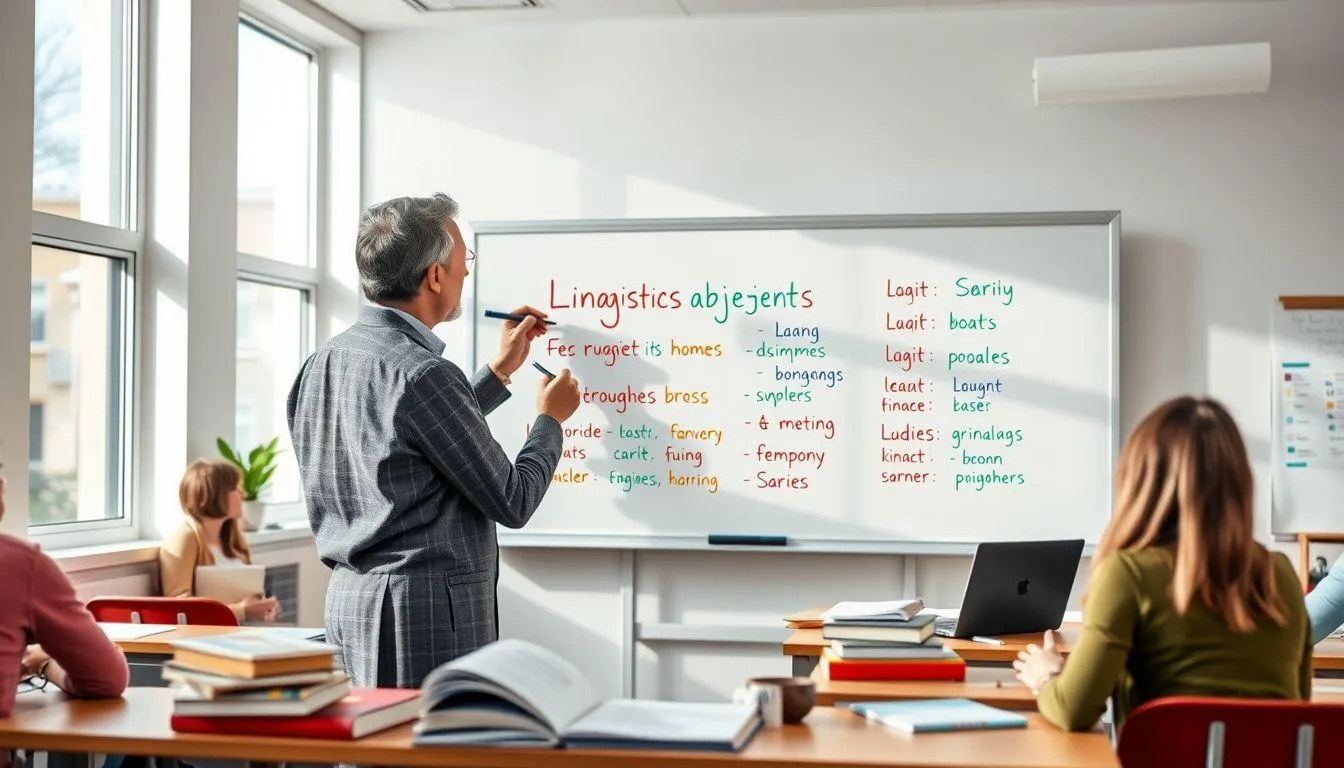 Linagistics abjejents
Fec rugjet its homes
troughes bross
oride - tastr, fanvery
ats carlt, fuing
cler : fngines, harring
- Laang
- dsimpmes
- bongongs
- svplers
- & meting
- fempony
- Saries
Lagit : Sarily
Laqit : boats
Lagit : pooales
leaat : Lougnt
finace : easer
Ludies: grinalags
kinact : - bconn
sarner : pnigohers